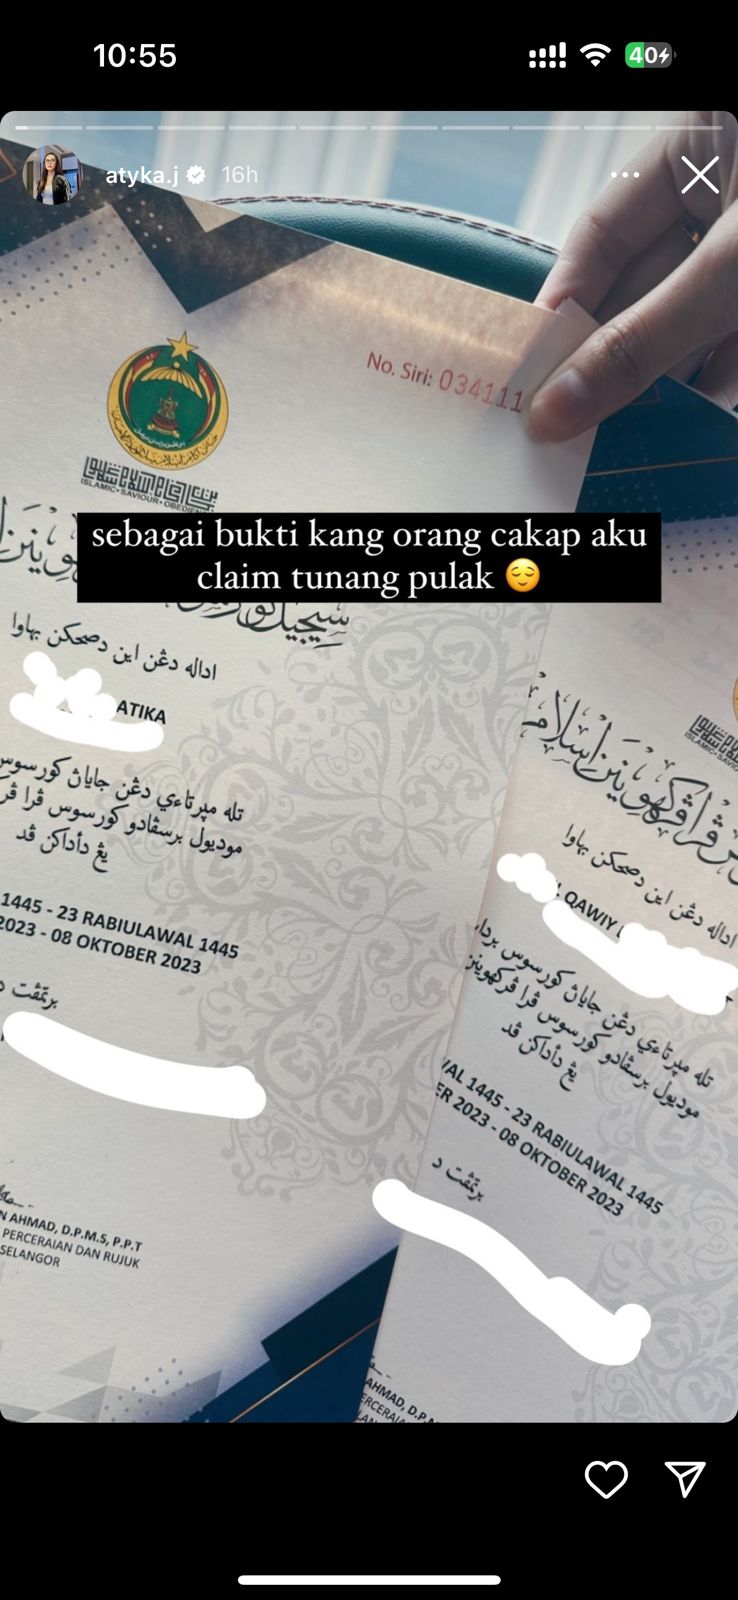 10:55
40
atyka.j 16h
No. Siri: 034111
ISLAMIC•SAVIOUR•OBEDIEN
sebagai bukti kang orang cakap aku
claim tunang pulak 😌
اداله دڠن اين دصحكن بهاوا
ATIKA
تله مڽرتاءي دڠن جايان كورسوس
موديول برسڤادو كورسوس ڤرا ڤر
يڠ دأداكن ڤد
1445 - 23 RABIULAWAL 1445
2023 - 08 OKTOBER 2023
برتمڤت د
N AHMAD, D.P.M.S, P.P.T
PERCERAIAN DAN RUJUK
SELANGOR
اداله دڠن اين دصحكن بهاوا
QAWIY
تله مڽرتاءي دڠن جايان كورسوس بردا
موديول برسڤادو كورسوس ڤرا ڤركهوينن
يڠ دأداكن ڤد
AL 1445 - 23 RABIULAWAL 1445
ER 2023 - 08 OKTOBER 2023
برتمڤت د
AHMAD, D.P.M
PERCERAIA